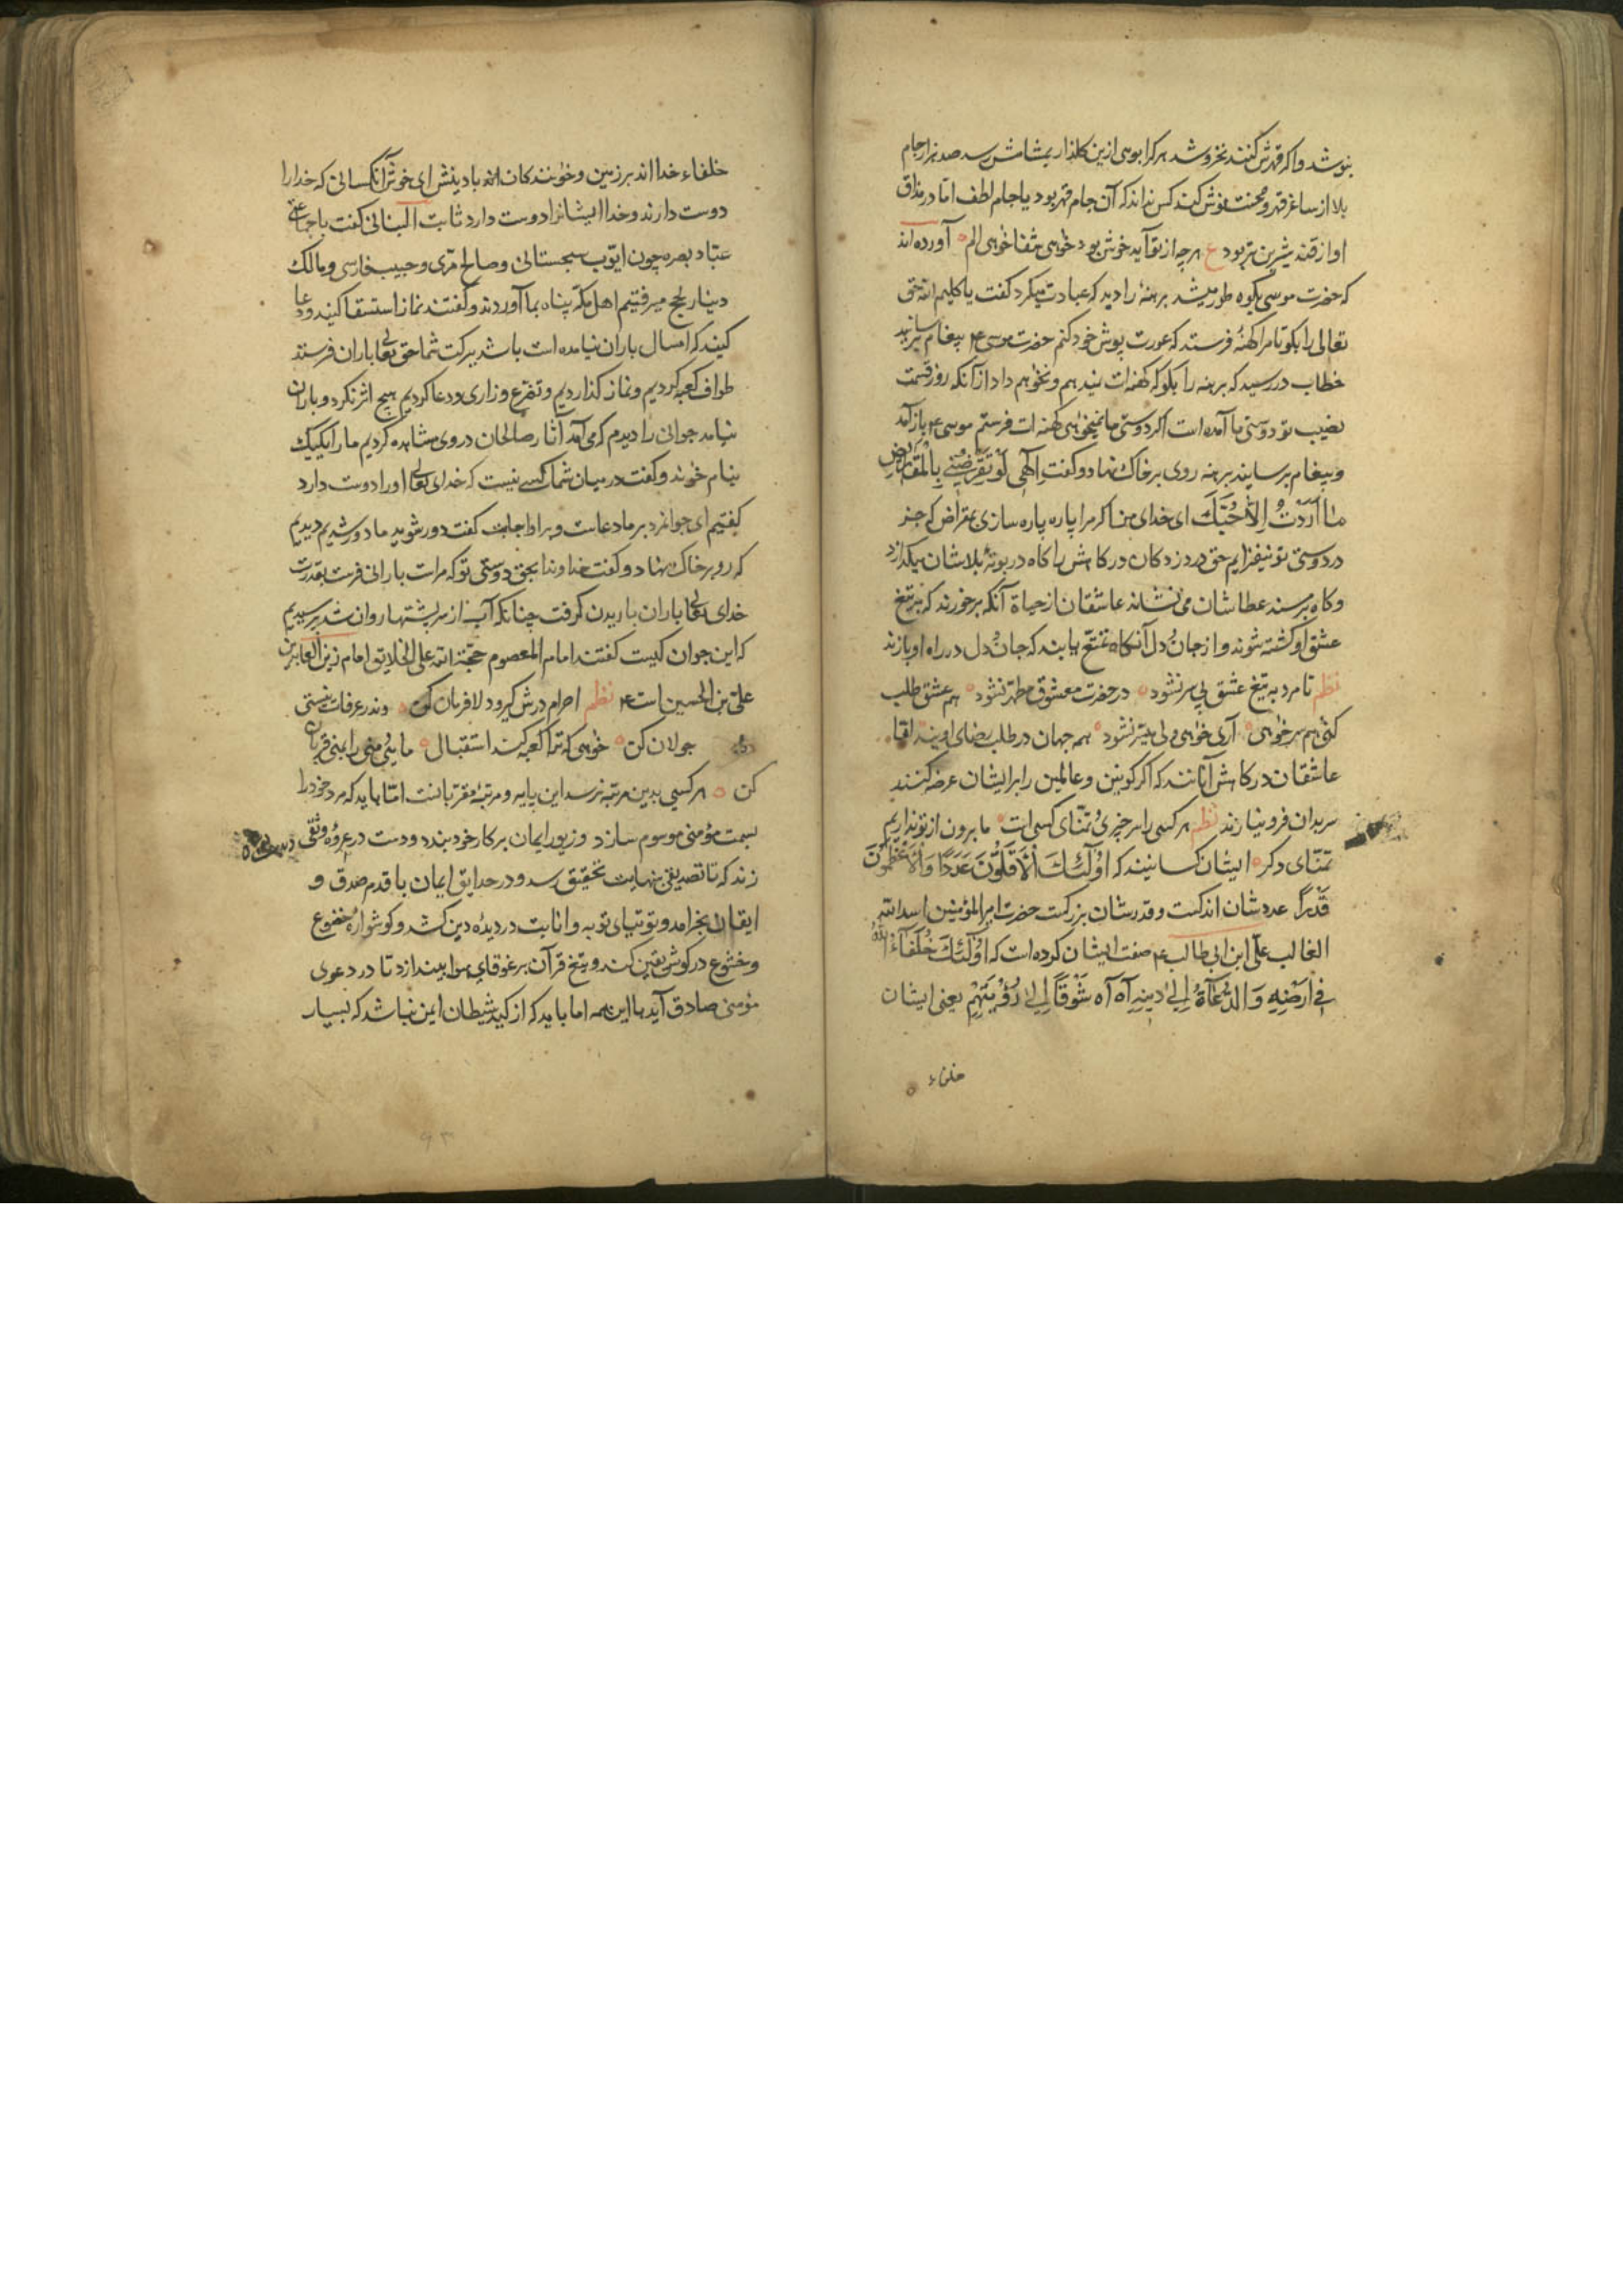 بنوشد و اگر قهرش کنند نخروشد هر کرا بویی ازین گلذار بمشامش رسد صد هزار جام
بلا از ساغر قهر و محنت نوش کند کس نداند که آن جام قهر بود یا جام لطف اما در مذاق
او از قند شیرین تر بود ع هر چه از تو آید خوش بود خواهی شفا خواهی الم آورده‌اند
که حضرت موسی بکوه طور میشد برهنهٔ را دید که عبادت میکرد گفت یا کلیم الله حق
تعالی را بکو تا مرا کهنهٔ فرستد که عورت پوش خود کنم حضرت موسی ع پیغام
خطاب در رسید که برهنه را بکو که کهنه‌ات ندهم و نخواهم داد از آنکه روز قسمت
نصیب تو دوستی ما آمده است اگر دوستی ما نمیخواهی کهنه‌ات فرستم موسی ع باز آمد
و پیغام برسانید برهنه روی بر خاک نهاد و گفت الهی لو تقرضنی بالمقاریض
ما اردت الا حبک ای خدای من اگر مرا پاره پاره سازی بمقراض که جز
در دوستی تو نیفزایم حق دردزدکان درکاهش را کاه در بوتهٔ بلاشان میکدازد
و کاه بر مسند عطاشان می‌نشاند عاشقان از حیاة آنکه برخورند که به تیغ
عشق او کشته شوند و از جان و دل آنکاه تمتع یابند که جان و دل در راه او بازند
نظم تا مرد به تیغ عشق بی سر نشود در حضرت معشوق مطهر نشود هم عشق طلب
کنی هم سر خواهی آری خواهی ولی میسر نشود همه جهان در طلب رضای اویند لقا
عاشقان درکاهش آنانند که اگر کونین و عالمین را بر ایشان عرضه کنند
سر بدان فرو نیارند نظم هر کسی را سر چیزی و تمنای کسی است ما برون از تو نداریم
تمنای دکر ایشان کسانیند که اولئک الاقلون عددا والاعظمون
قدرا عددشان اندکست و قدرشان بزرکست حضرت امیر المؤمنین اسد الله
الغالب علی ابن ابی طالب ع صفت ایشان کرده است که اولئک خلفاء الله
فی ارضه والدعاة الی دینه آه آه شوقا الی رؤیتهم یعنی ایشان
خلفاء
خلفاء خدا اند بر زمین و خوانندکان اند بادینش ای خوش آنکسانی که خدا را
دوست دارند و خدا ایشانرا دوست دارد ثابت البنانی گفت با جماعتی
عباد بصره چون ایوب سجستانی و صالح مری و حبیب فارسی و مالک
دینار بحج میرفتیم اهل مکه پناه بما آوردند و گفتند نماز استسقا کنید و دعا
کنید که امسال باران نیامده است باشد ببرکت شما حق تعالی باران فرستد
طواف کعبه کردیم و نماز کذاردیم و تضرع و زاری و دعا کردیم هیچ اثر نکرد و باران
نیامد جوانی را دیدم که می‌آمد آثار صالحان در وی مشاهده کردیم ما را یکیک
بنام خواند و گفت در میان شما کسی نیست که خدای تعالی او را دوست دارد
گفتیم ای جوانمرد بر ما دعاست و بر او اجابت گفت دور شوید ما دور شدیم دیدیم
که رو بر خاک نهاد و گفت خداوندا بحق دوستی تو که مراست بارانی فرست بقدرت
خدای تعالی باران باریدن کرفت چنانکه آب از سر پشتها روان شد پرسیدیم
که این جوان کیست گفتند امام المعصوم حجة الله علی الخلایق امام زین العابدین
علی بن الحسین است ع نظم احرام درش کیر و دلا فرمان کن وندر عرفات نیستی
جولان کن خواهی که ترا کعبه کند استقبال مایی و منی را بمنی قربان
کن هر کسی بدین مرتبه نرسد این پایه و مرتبه مقربانست اما باید که مرد خود را
بسمت مؤمنی موسوم سازد و زیور ایمان بر کار خود بندد و دست در عروه وثقی
زند که تا تصدیق بنهایت تحقیق رسد و در حدایق ایمان با قدم صدق و
ایقان بخرامد و توتیای توبه و انابت در دیدهٔ دین کشد و کوشوارهٔ خضوع
و خشوع در کوش یقین کند و تیغ قرآن بر غوغای هوا بیندازد تا در دعوی
مؤمنی صادق آید با این همه اما باید که از کید شیطان ایمن نباشد که بسیار